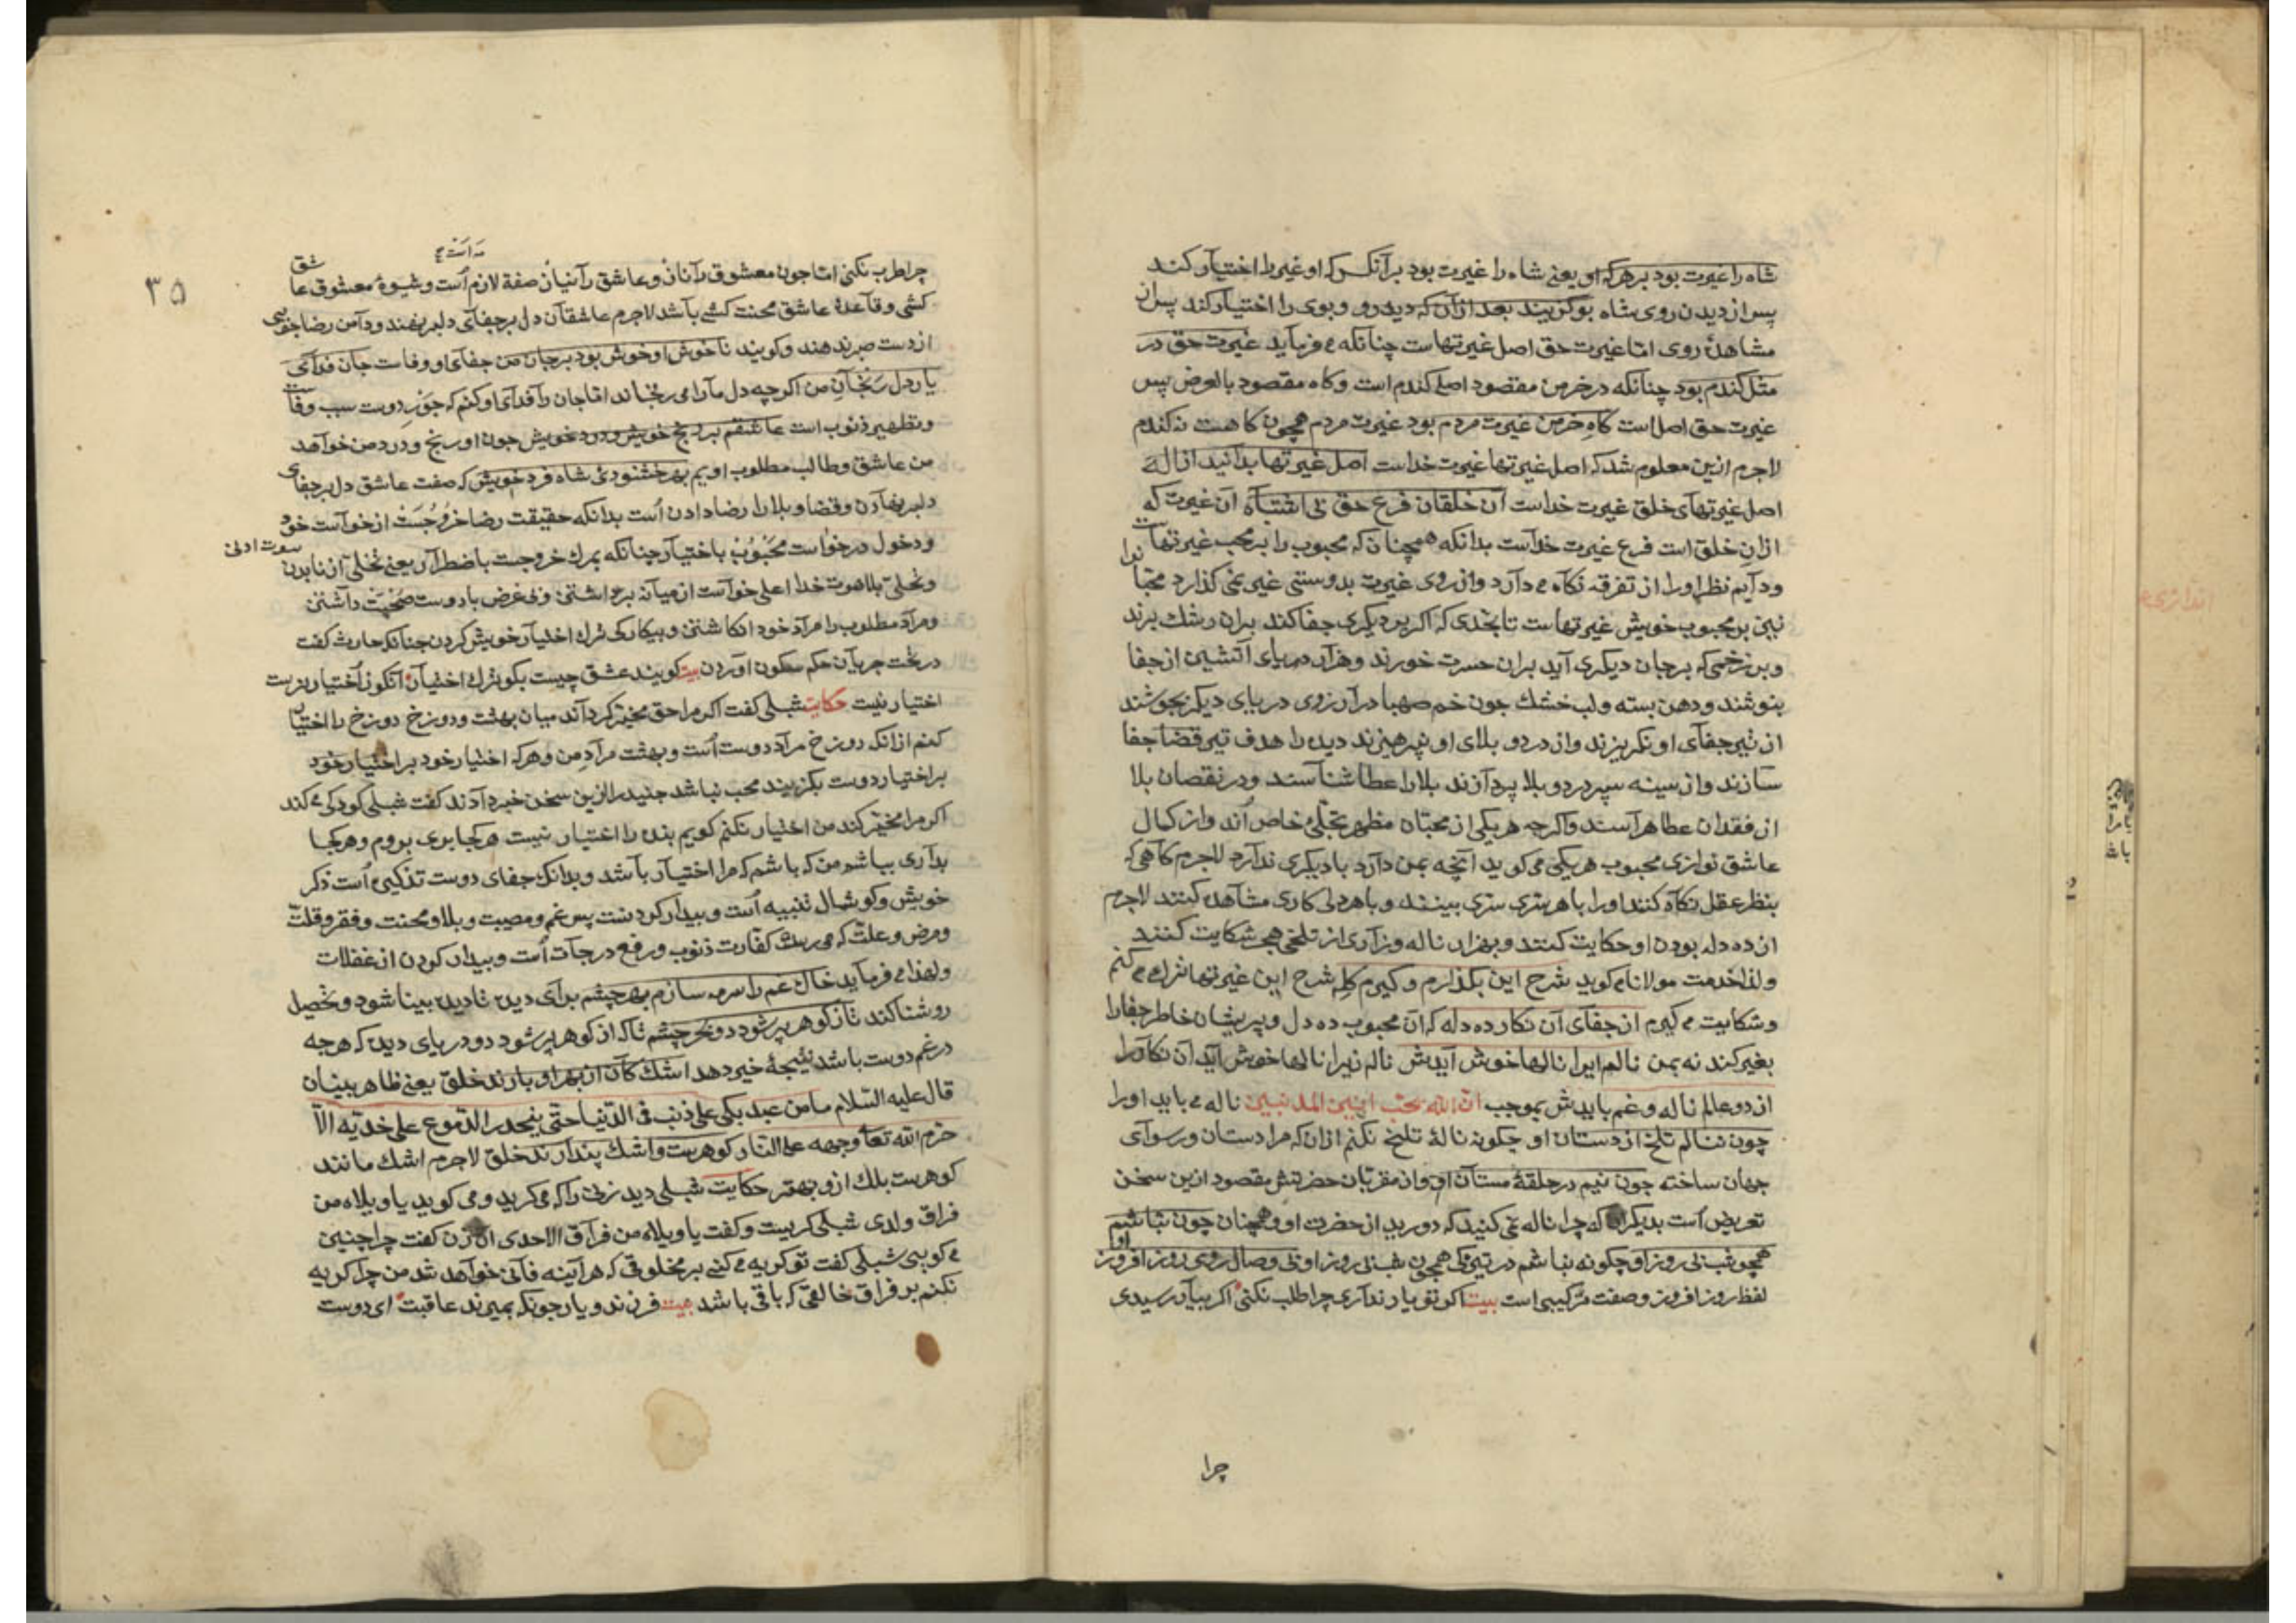 شاه را غیرت بود بر هر که او یعنی شاه را غیرت بود بر آنکس که او غیر را اختیار کند
پس از دیدن روی شاه بو گزیند بعد از آن که دید رو و بوی را اختیار کند پس از
مشاهدهٔ روی اما غیرت حق اصل غیرتهاست چنانکه می فرماید غیرت حق در
مثل گندم بود چنانکه در خرمن مقصود اصلی گندم است و کاه مقصود بالعرض پس
غیرت حق اصل است کاه خرمن غیرت مردم بود غیرت مردم همچون کاهست نه گندم
لاجرم ازین معلوم شد که اصل غیرتها غیرت خداست اصل غیرتها بدانید از اله
اصل غیرتهای خلق غیرت خداست آن خلقان فرع حق بی اشتباه آن غیرت که
ازان خلق است فرع غیرت خداست بدانکه همچنان که محبوب را بر محب غیرتهاست
ودایم نظر او را از تفرقه نگاه می دارد و از روی غیرت بدوستی غیر نمی گذارد محب را
نیز بر محبوب خویش غیرتهاست تا بحدی که اگر بر دیگری جفا کند بران رشک برند
و بر زخمی که بر جان دیگری آید بران حسرت خورند و هزار دریای آتشین از جفا
بنوشند و دهن بسته و لب خشک چون خم صهبا در آرزوی دریای دیگر بجوشند
از تیر جفای او نگریزند و از درد و بلای او نپرهیزند دیده را هدف تیر قضا جفا
سازند و از سینه سپر درد و بلا پردازند بلا را عطا شناسند و در نقصان بلا
از فقدان عطا هراسند و اگرچه هر یکی از محبّان مظهر تجلّی خاص اند و از کمال
عاشق نوازی محبوب هر یکی می گوید آنچه بمن دارد با دیگری ندارد لاجرم گاهی که
بنظر عقل نگاه کنند او را با هر سری سری بینند و با هر دلی کاری مشاهده کنند لاجرم
از ده دله بودن او حکایت کنند و بهزار ناله و زاری از تلخی هجر شکایت کنند
ولذا خدمت مولانا می گوید شرح این بگذارم و گیرم گله شرح این غیرتها ترک می کنم
و شکایت می گیرم از جفای آن نگار ده دله که آن محبوب ده دل و پریشان خاطر جفا را
بغیر کند نه بمن نالم ایرا نالها خوش آیدش نالم زیرا نالها خوش آید آن نگار را
از دو عالم ناله و غم بایدش بموجب انّ الله یحبّ انین المذنبین ناله می باید او را
چون ننالم تلخ از دستان او چگونه نالهٔ تلخ نکنم ازان که مرا دستان و رسوای
جهان ساخته چون نیم در حلقهٔ مستان او و از مقربان حضرتش مقصود ازین سخن
تعریض است بدیگران که چرا ناله نمی کنید که دورید از حضرت او و همچنان چون نباشم
همچو شب بی روز او چگونه نباشم در تیرگی همچون شب بی روز او بی وصال روی روز افروز او
لفظ روز افروز وصفت ترکیبی است بیت اگر تو یار نداری چرا طلب نکنی اگر بیار رسیدی
چرا
۳۵
چرا طرب نکنی اما چون معشوق را ناز و عاشق را نیاز صفة لازم است و شیوهٔ معشوق عاشق
کشی و قاعدهٔ عاشق محنت کشی باشد لاجرم عاشقان دل بر جفای دلبر نهند و دامن رضا
از دست صبر ندهند و گویند ناخوش او خوش بود بر جان من جفای او وفاست جان فدای
یار دل رنجان من اگرچه دل ما را می رنجاند اما جان را فدای او کنم که جور دوست سبب وفاست
و تطهیر ذنوب است عاشقم بر رنج خویش و درد خویش چون او رنج و درد من خواهد
من عاشق و طالب مطلوب اویم بهر خشنودی شاه فرد خویش که صفت عاشق دل بر جفای
دلبر نهادن و قضا و بلا را رضا دادن است بدانکه حقیقت رضا خروجست از خواست خود
و دخول در خواست محبوب باختیار چنانکه بمرگ خروجست باضطرار یعنی تخلی از ناسوت ادنی
و تحلی بلاهوت خدا اعلی خواست از میانه برداشتن و بی غرض با دوست صحبت داشتن
و مراد مطلوب را مراد خود انگاشتن و بیکبارگی ترک اختیار خویش کردن چنانکه حارث گفت
در تحت جریان حکم سکون اوردن بیت گویند عشق چیست بگو ترک اختیار انکو ز اختیار نرست
اختیار نیست حکایت شبلی گفت اگر مرا حق مخیّر گرداند میان بهشت و دوزخ دوزخ را اختیار
کنم ازانکه دوزخ مراد دوست است و بهشت مراد من و هر که اختیار خود بر اختیار خود
بر اختیار دوست بگزیند محب نباشد جنید را ازین سخن خبر دادند گفت شبلی کودکی می کند
اگر مرا مخیّر کند من اختیار نکنم گویم بنده را اختیار نیست هر کجا بری بروم و هر کجا
بداری بباشم من که باشم که مرا اختیار باشد و بدانکه جفای دوست تذکیر است ذکر
خویش و گوشمال تنبیه است و بیدار کردنست پس غم و مصیبت و بلا و محنت و فقر و قلّت
و مرض و علّت که می رسد کفارت ذنوب و رفع درجات است و بیدار کردن از غفلات
ولهذا می فرماید خاک غم را سرمه سازم بهر چشم برای دیده تا دیده بینا شود و تحصیل
روشنا کند تا ز گوهر پر شود دو بحر چشم تا که از گوهر پر شود دو دریای دیده که هرچه
در غم دوست باشد نتیجهٔ خیر دهد اشک کان از بهر او بارند خلق یعنی ظاهر بینان
قال علیه السّلام ما من عبد بکی علی ذنب فی الدّنیا حتّی ینحدر الدّموع علی خدّیه الّا
حرّم الله تعالی وجهه علی النّار گوهرست و اشک پندارند خلق لاجرم اشک مانند
گوهرست بلک ازو بهتر حکایت شبلی دید زنی را که می گرید و می گوید یا ویلاه من
فراق ولدی شبلی گریست و گفت یا ویلاه من فراق الاحدی آن زن گفت چرا چنین
می گویی شبلی گفت تو گریه می کنی بر مخلوقی که هر آینه فانی خواهد شد من چرا گریه
نکنم بر فراق خالقی که باقی باشد بیت فرزند و یار چونکه بمیرند عاقبت ای دوست